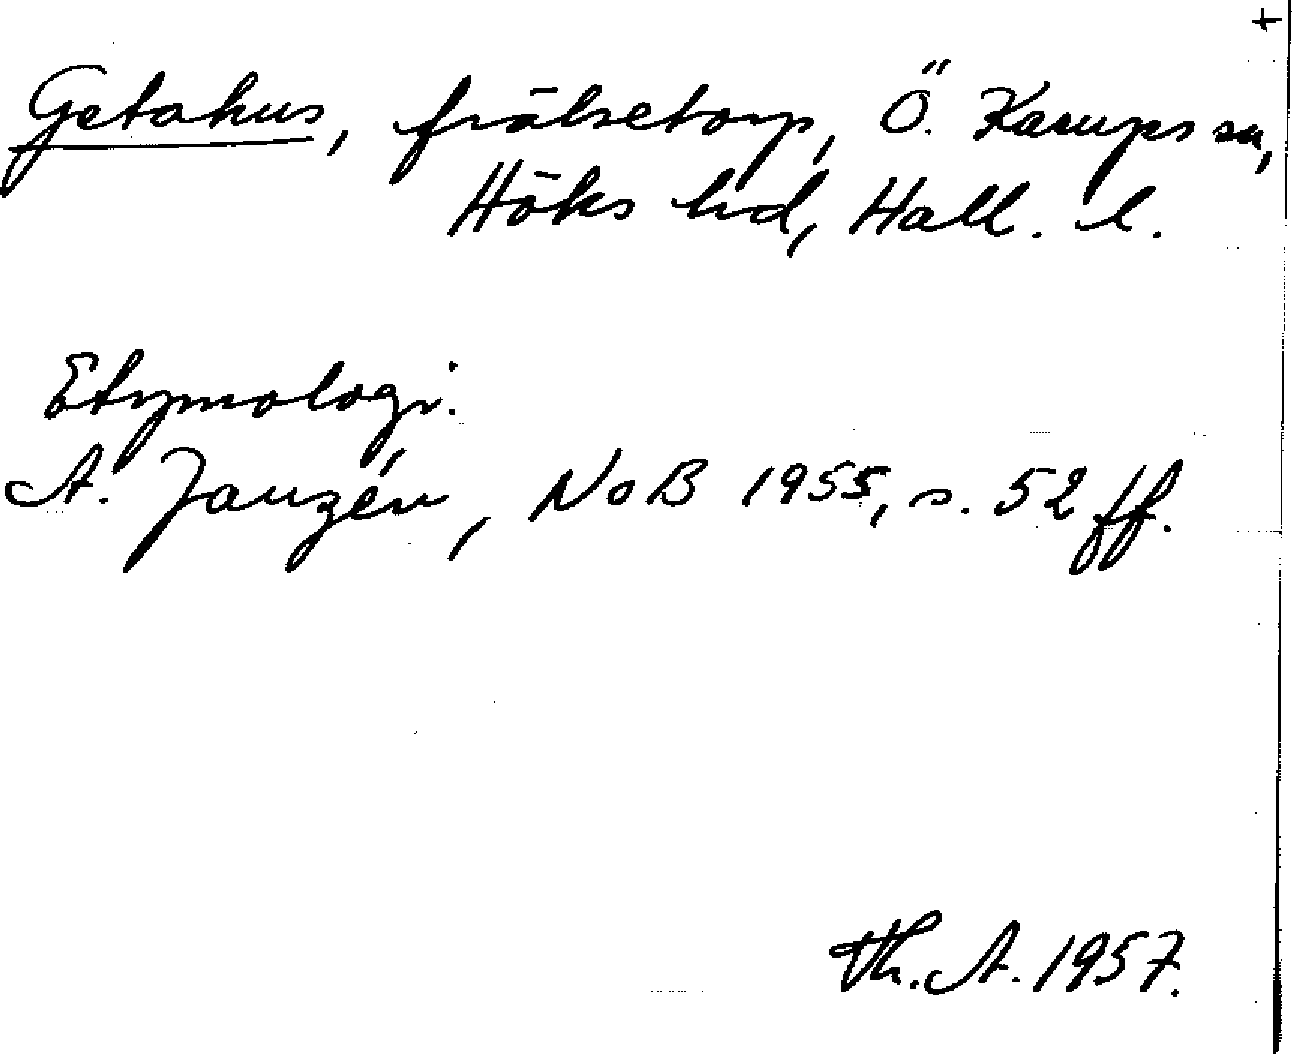 +
Getahus, frälsetorp, Ö. Karups sn,
Höks hd, Hall. l.
Etymologi.
A. Janzén, NoB 1955, s. 52 ff.
Th. A. 1957.